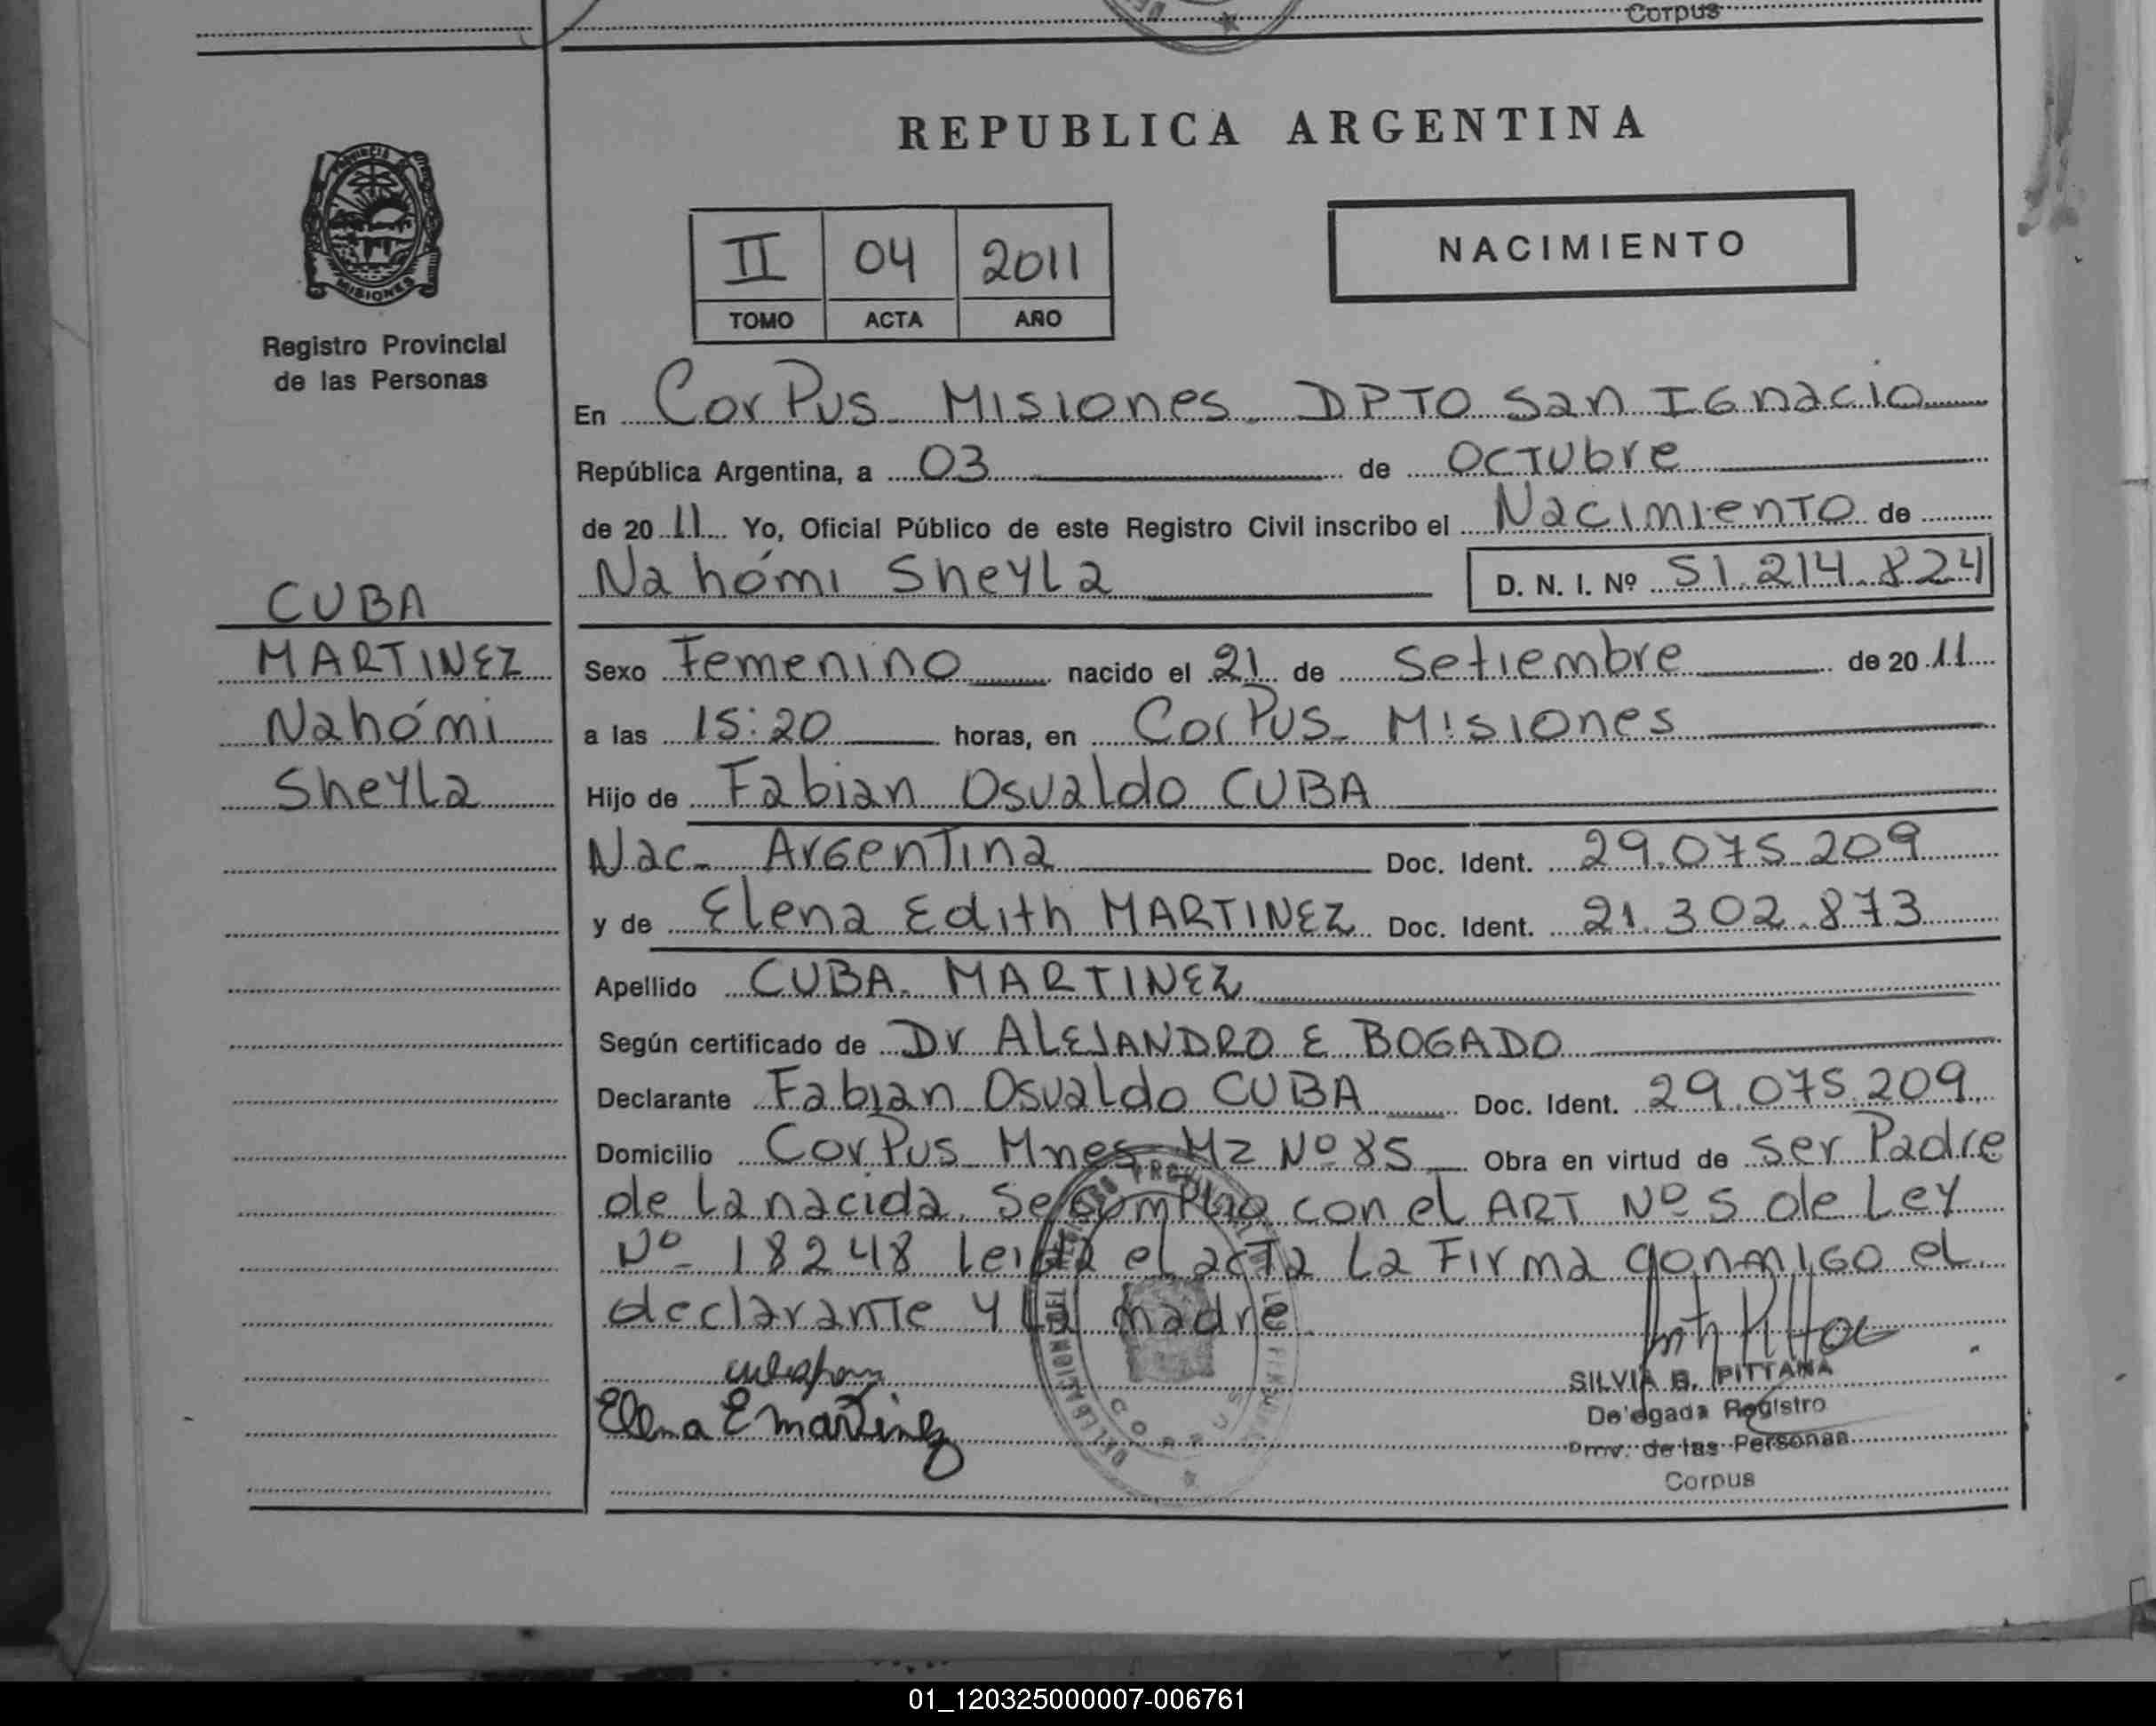 Corpus
REPUBLICA ARGENTINA
PROVINCIA DE
MISIONES
Registro Provincial
de las Personas
II 04 2011
TOMO ACTA AÑO
NACIMIENTO
En Corpus - Misiones - DPTO San Ignacio
República Argentina, a 03 de Octubre
de 20 11 Yo, Oficial Público de este Registro Civil inscribo el Nacimiento de
Nahómi Sheyla D. N. I. Nº 51.214.824
CUBA
MARTINEZ
Nahómi
Sheyla
Sexo Femenino nacido el 21 de Setiembre de 20 11
a las 15:20 horas, en Corpus - Misiones
Hijo de Fabian Osvaldo CUBA
Nac - Argentina Doc. Ident. 29.075.209
y de Elena Edith MARTINEZ Doc. Ident. 21.302.873
Apellido CUBA - MARTINEZ
Según certificado de Dr ALEJANDRO E BOGADO
Declarante Fabian Osvaldo CUBA Doc. Ident. 29.075.209
Domicilio Corpus - Mnes - Mz Nº 85 - Obra en virtud de ser Padre
de la nacida. Se cumplio con el ART Nº 5 de Ley
Nº - 18248 leida el acta la Firma conmigo el
declarante y la madre
Elena E Martinez
SILVIA B. PITTANA
Delegada Registro
Prov. de las Personas
Corpus
CORPUS
01_120325000007-006761